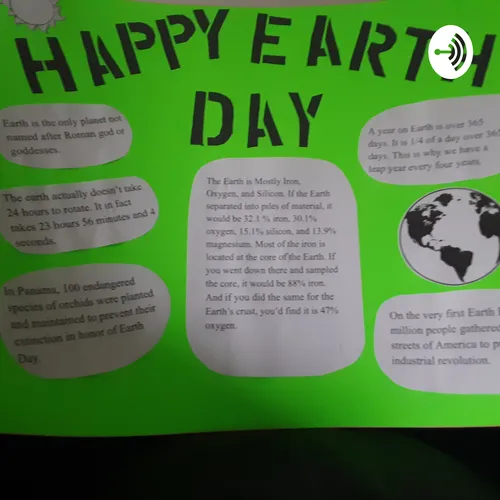 HAPPY EARTH
DAY
Earth is the only planet not
named after Roman god or
goddesses.
The earth actually doesn't take
24 hours to rotate. It in fact
takes 23 hours 56 minutes and 4
seconds.
In Panama, 100 endangered
species of orchids were planted
and maintained to prevent their
extinction in honor of Earth
Day.
The Earth is Mostly Iron,
Oxygen, and Silicon. If the Earth
separated into piles of material, it
would be 32.1 % iron, 30.1%
oxygen, 15.1% silicon, and 13.9%
magnesium. Most of the iron is
located at the core of the Earth. If
you went down there and sampled
the core, it would be 88% iron.
And if you did the same for the
Earth's crust, you'd find it is 47%
oxygen.
A year on Earth is over 365
days. It is 1/4 of a day over 365
days. This is why we have a
leap year every four years.
On the very first Earth
million people gathered
streets of America to
industrial revolution.